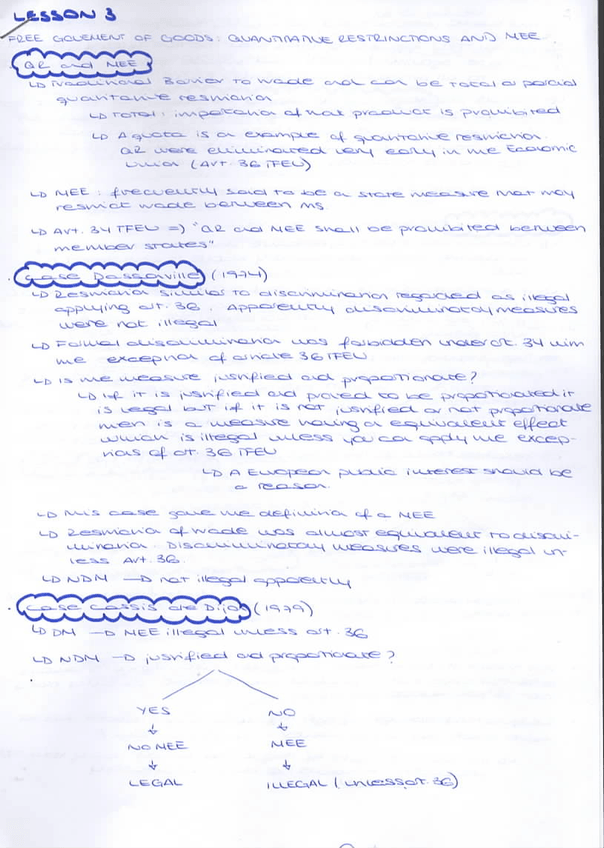 LESSON 3
FREE GOVEMENT OF GOODS: QUANTITATIVE RESTRINCTIONS AND MEE
QR and MEE
↳ Traditional Barrier to trade and can be total or partial
quantitative restriction
↳ TOTAL: importation of that product is prohibited
↳ A quota is a example of quantitative restriction.
QR were eliminated very early in the Economic
Union (Art. 36 TFEU)
↳ MEE: frequently said to be a state measure that may
restrict trade between MS
↳ Art. 34 TFEU => "QR and MEE shall be prohibited between
member states"
Case Dassonville (1974)
↳ Restriction similar to discrimination regarded as illegal
applying art. 36. Apparently discriminatory measures
were not illegal
↳ Formal discrimination was forbidden under art. 34 with
the exception of article 36 TFEU
↳ Is the measure justified and proportionate?
↳ If it is justified and proved to be proportionated it
is legal but if it is not justified or not proportionate
then is a measure having an equivalent effect
which is illegal unless you can apply the excep-
tions of art. 36 TFEU
↳ A European public interest should be
a reason.
↳ This case gave the definition of a MEE
↳ Restriction of trade was almost equivalent to discri-
mination. Discriminatory measures were illegal un-
less Art. 36.
↳ NDM → not illegal apparently
Case Cassis de Dijon (1979)
↳ DM → MEE illegal unless art. 36
↳ NDM → justified and proportionate?
YES NO
↓ ↓
NO MEE MEE
↓ ↓
LEGAL ILLEGAL (unless art. 36)